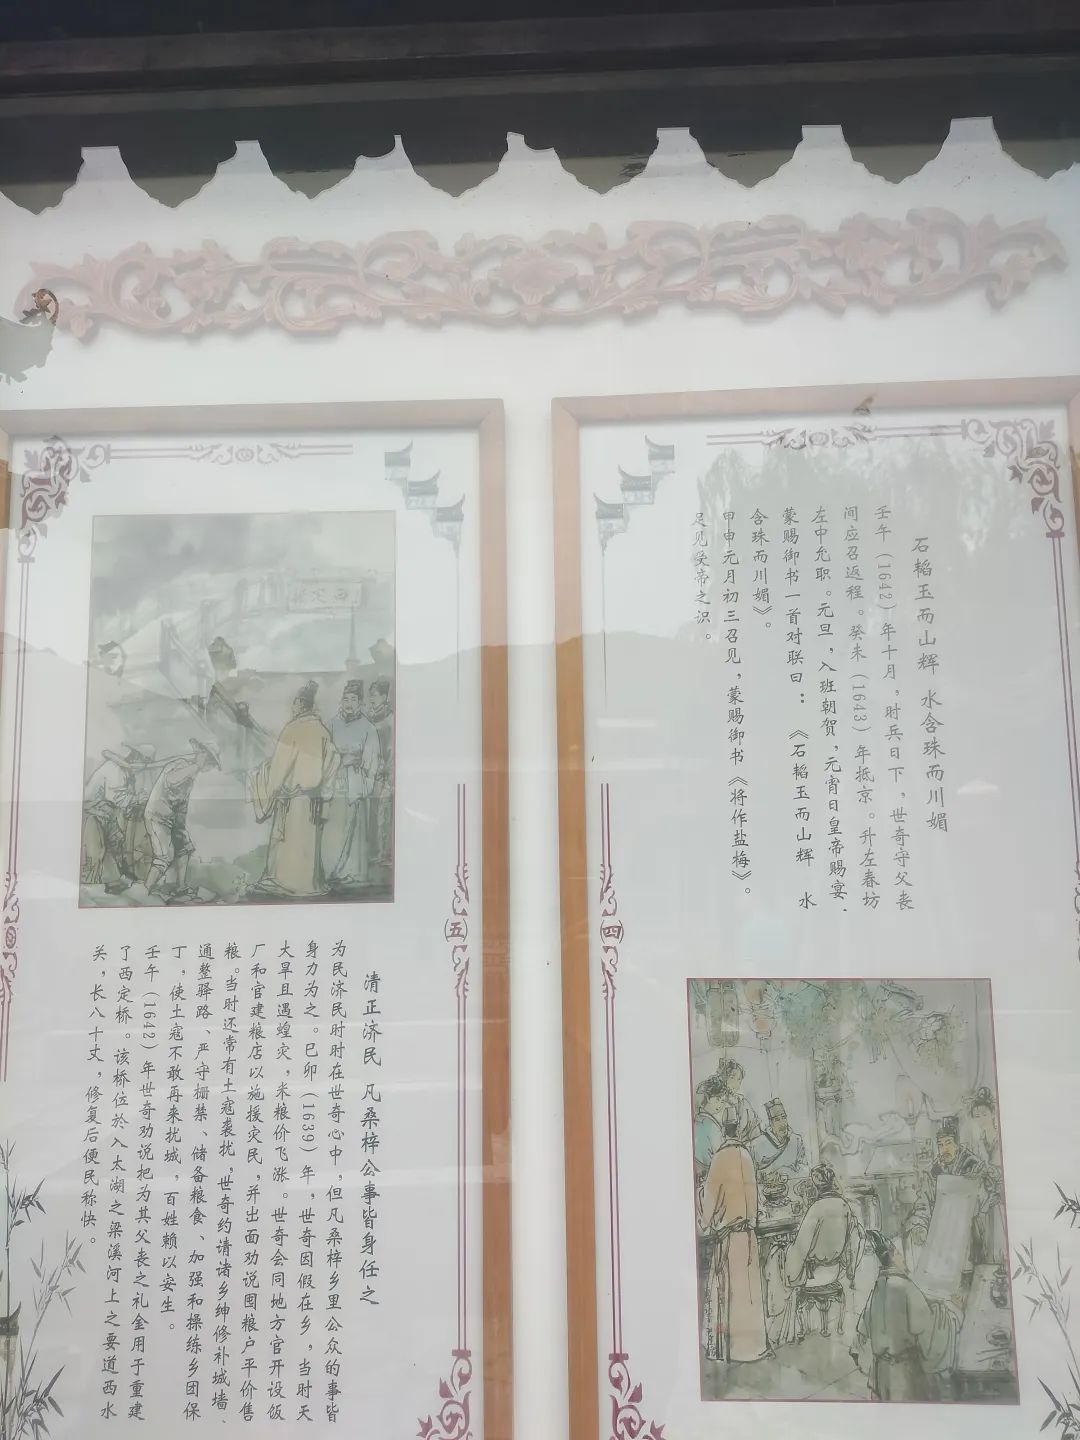 石韬玉而山辉 水含珠而川媚
壬午（1642）年十月，时兵日下，世奇守父丧
间应召返程。癸未（1643）年抵京。升左春坊
左中允职。元旦，入班朝贺，元宵日皇帝赐宴．
蒙赐御书一首对联曰：《石韬玉而山辉 水
含珠而川媚》。
甲申元月初三召见，蒙赐御书《将作盐梅》。
足见受帝之识。
四
五
清正济民 凡桑梓公事皆身任之
为民济民时时在世奇心中，但凡桑梓乡里公众的事皆
身力为之。巳卯（1639）年，世奇因假在乡，当时天
大旱且遇蝗灾，米粮价飞涨。世奇会同地方官开设饭
厂和官建粮店以施援灾民，并出面劝说囤粮户平价售
粮。当时还常有土寇袭扰，世奇约请诸乡绅修补城墙、
通整驿路、严守栅禁、储备粮食、加强和操练乡团保
丁，使土寇不敢再来扰城，百姓赖以安生。
壬午（1642）年世奇劝说把为其父丧之礼金用于重建
了西定桥。该桥位於入太湖之梁溪河上之要道西水
关，长八十丈，修复后便民称快。